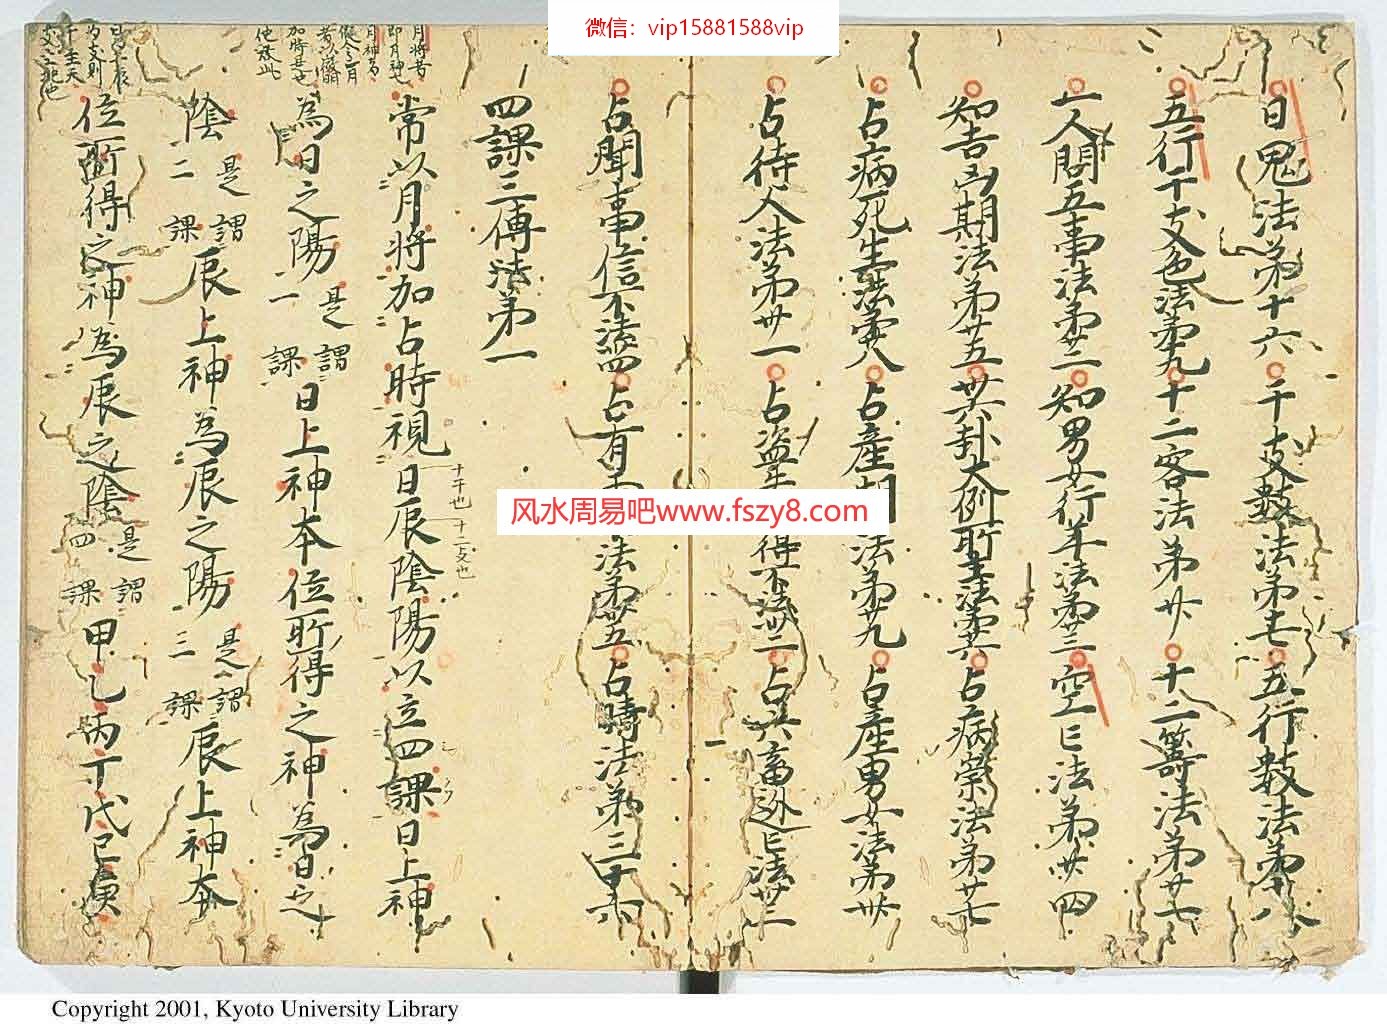 微信：vip15881588vip
日鬼法第十六 干支數法第十七 五行數法第十八
五行干支色法第十九 十二客法第廿 十二籌法第廿七
一人問五事法第廿二 知男女行年法第廿三 空亡法第廿四
知吉凶期法第廿五 卅六卦大例所主法第廿六 占病祟法第廿七
占病死生法第廿八 占產期法第廿九 占產男女法第卅
占待人法第卅一 占盜失得不法卅二 占六畜逃亡法卅三
占聞事信不法卅四 占有 法第卅五 占晴法第三十六
四課三傳法第一
月將者
即月神也
月神為
假令正月
者以徵明
加時是也
他效此
常以月將加占時視日辰陰陽以立四課日上神
十干也
十二支也
為日之陽 是謂一課 日上神本位所得之神為日之
陰 是謂二課 辰上神為辰之陽 是謂三課 辰上神本
為支則
位所得之神為辰之陰 是謂四課 甲乙丙丁戊己庚
风水周易吧www.fszy8.com
Copyright 2001, Kyoto University Library